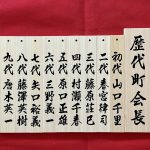 歴代町会長
初代 山口千里
二代 春宮律司
三代 藤原荘巳
四代 村瀬千春
五代 原口正雄
六代 三野義一
七代 矢口裕義
八代 藤澤英樹
九代 唐木英一